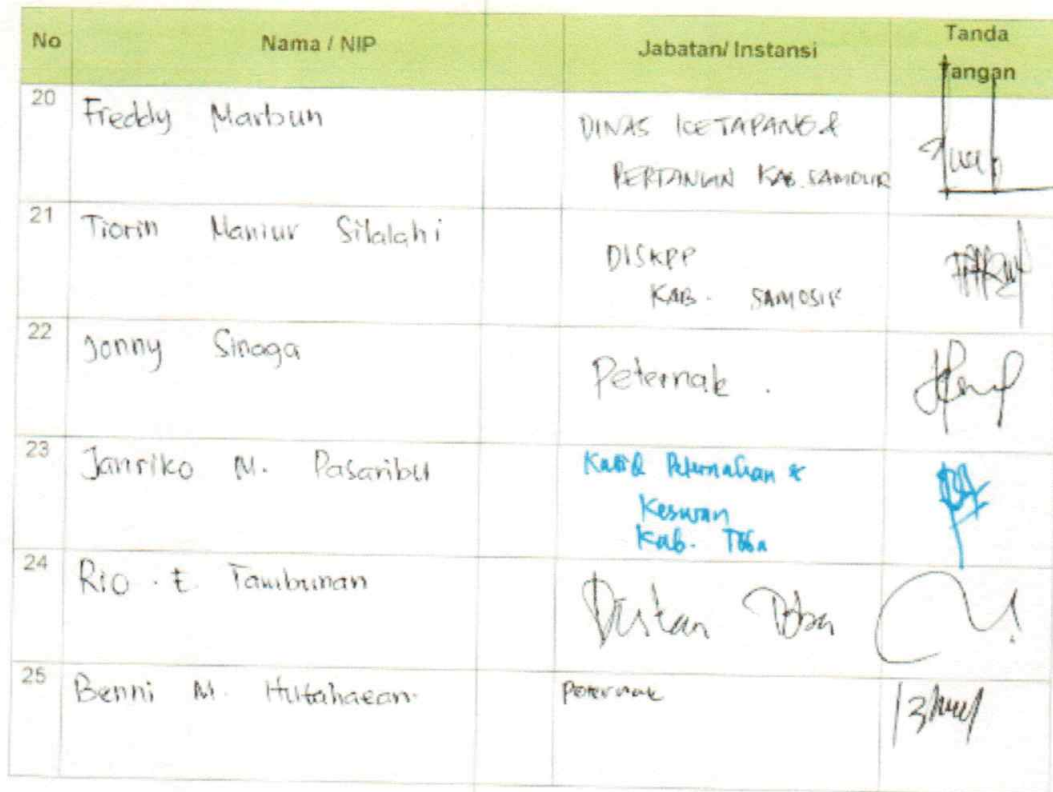 No Nama / NIP Jabatan/ Instansi Tanda Tangan
20 Freddy Marbun DINAS KETAPANG &
PERTANIAN KAB. SAMOSIR
21 Tiorin Maniur Silalahi DISKPP
KAB. SAMOSIR
22 Jonny Sinaga Peternak .
23 Janriko M. Pasaribu Kabid Peternakan &
Keswan
Kab. Toba
24 Rio . E. Tambunan Distan Toba
25 Benni M. Hutahaean Peternak